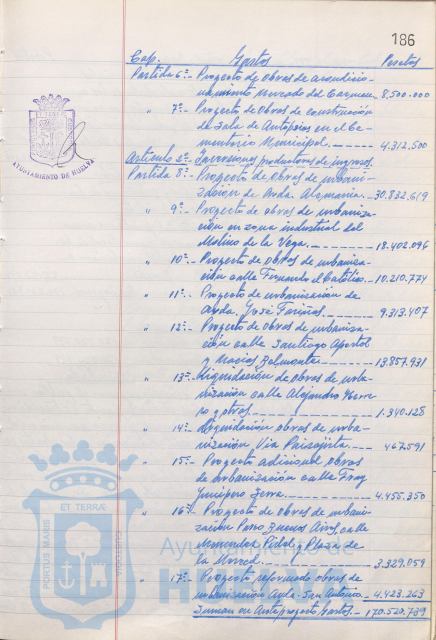 186
Cap. Gastos Pesetas
Partida 6ª- Proyecto de obras de acondicio-
namiento mercado del Carmen - 8.500.000
" 7ª- Proyecto de obras de construcción
de Sala de Autopsias en el Ce-
menterio Municipal. - 4.312.500
Artículo 2º- Inversiones productoras de ingresos.
Partida 8ª- Proyecto de obras de urbani-
zación de Avda. Alemania. - 30.832.619
" 9ª- Proyecto de obras de urbaniza-
ción en zona industrial del
Molino de la Vega. - 18.402.096
" 10ª- Proyecto de obras de urbaniza-
ción calle Fernando el Católico. - 10.210.774
" 11ª- Proyecto de urbanización de
avda. José Fariñas. - 9.313.407
" 12ª- Proyecto de obras de urbaniza-
ción calle Santiago Apostol
y Macías Belmonte. - 13.857.931
" 13ª- Liquidación de obras de urba-
nización calle Alejandro Herre-
ro y otros. - 1.340.128
" 14ª- Liquidación obras de urba-
nización Vía Paisajista. - 467.591
" 15ª- Proyecto adicional obras
de urbanización calle Fray
Junípero Serra. - 4.455.350
" 16ª- Proyecto de obras de urbani-
zación Paseo Buenos Aires, calle
Menendez Pidal y Plaza de
la Merced. - 3.329.059
" 17ª- Proyecto reformado obras de
urbanización Avda. San Antonio. - 4.423.263
Suman en Anteproyecto Gastos. - 170.520.739
AYUNTAMIENTO DE HUELVA
PORTUS MARIS ET TERRÆ
Ayuntamiento de